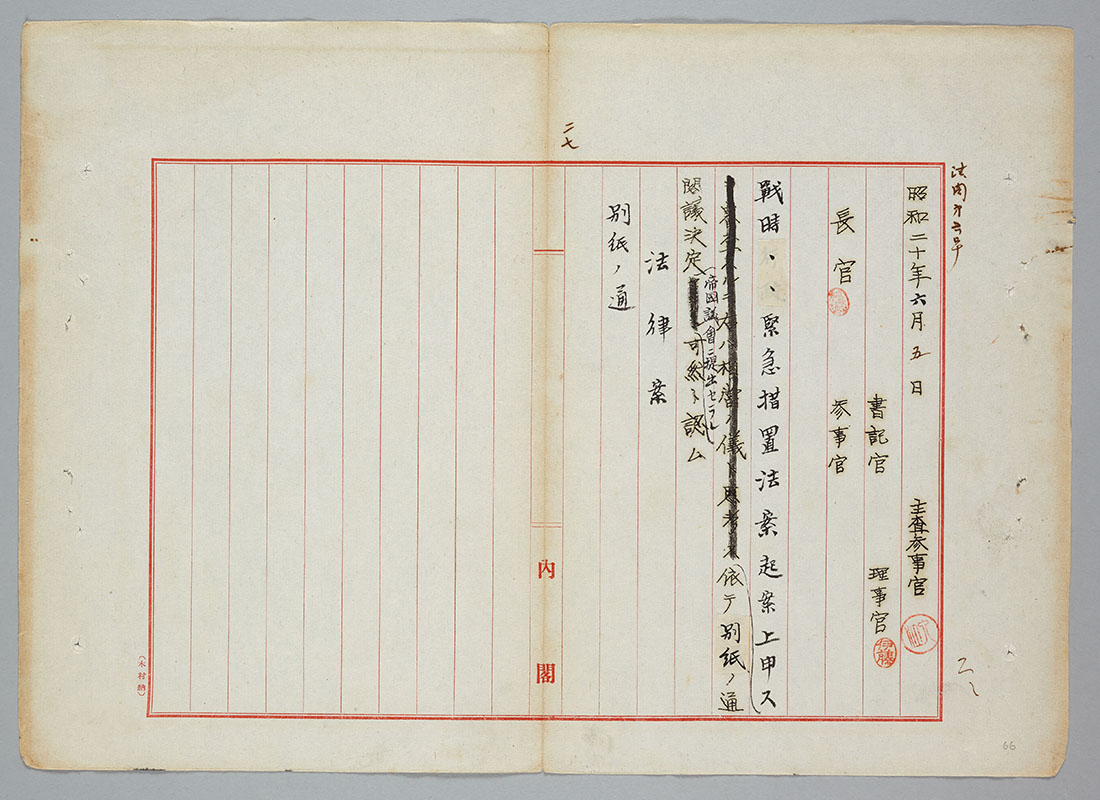 昭和二十年六月五日
主査参事官
書記官
理事官
伊藤
長官
参事官
戰時、、緊急措置法案起案上申ス
依テ別紙ノ通
帝國議會ニ提出セラレ
閣議決定
可然ト認ム
法律案
別紙ノ通
二七
內閣
(木村納)
66